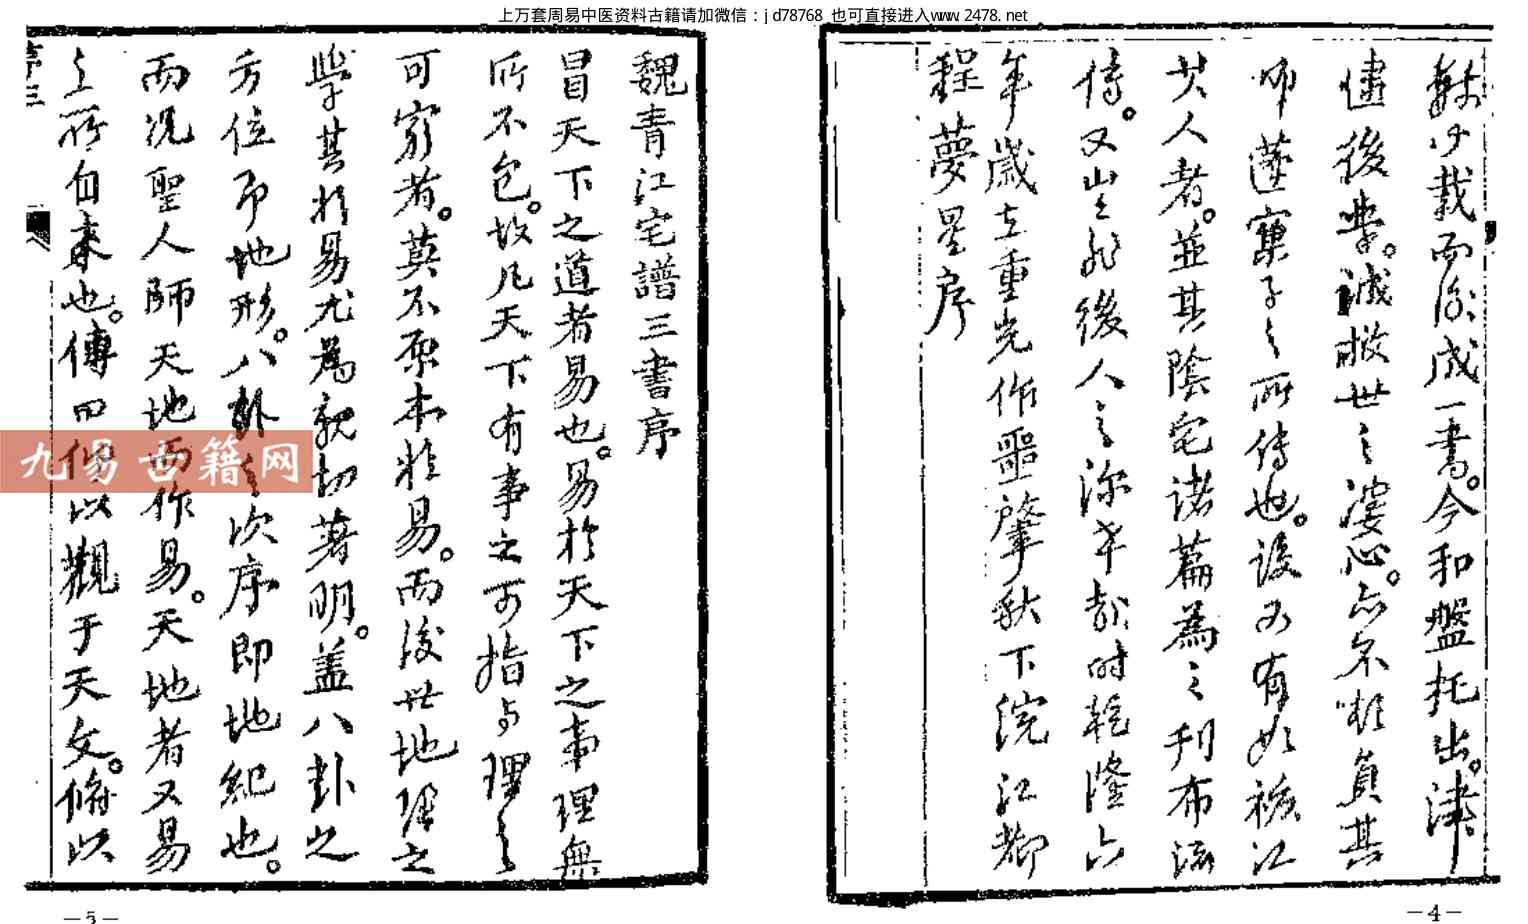 上万套周易中医资料古籍请加微信：jd78768 也可直接进入www.2478.net
數载而後成一書。今和盤托出。津
後學。誠救世之婆心。亦不啻負其
師蓬窠子之所傳也。設又有如
其人者。並其陰宅諸篇為之刊布流
傳。又豈非後人之深幸哉時乾隆六
年歲在重光作噩肇秋下浣江都
程夢星序
魏青江宅譜三書序
冒天下之道者易也。易於天下之事理無
所不包。故凡天下有事之可指与理之
可窮者。莫不原本於易。而後世地理之
學其於易尤為親切著明。盖八卦之
方位即地形。八卦之次序即地紀也。
而况聖人師天地而作易。天地者又易
之所自来也。傳曰仰以觀于天文。俯以
序三
九易古籍网
－5－
－4－